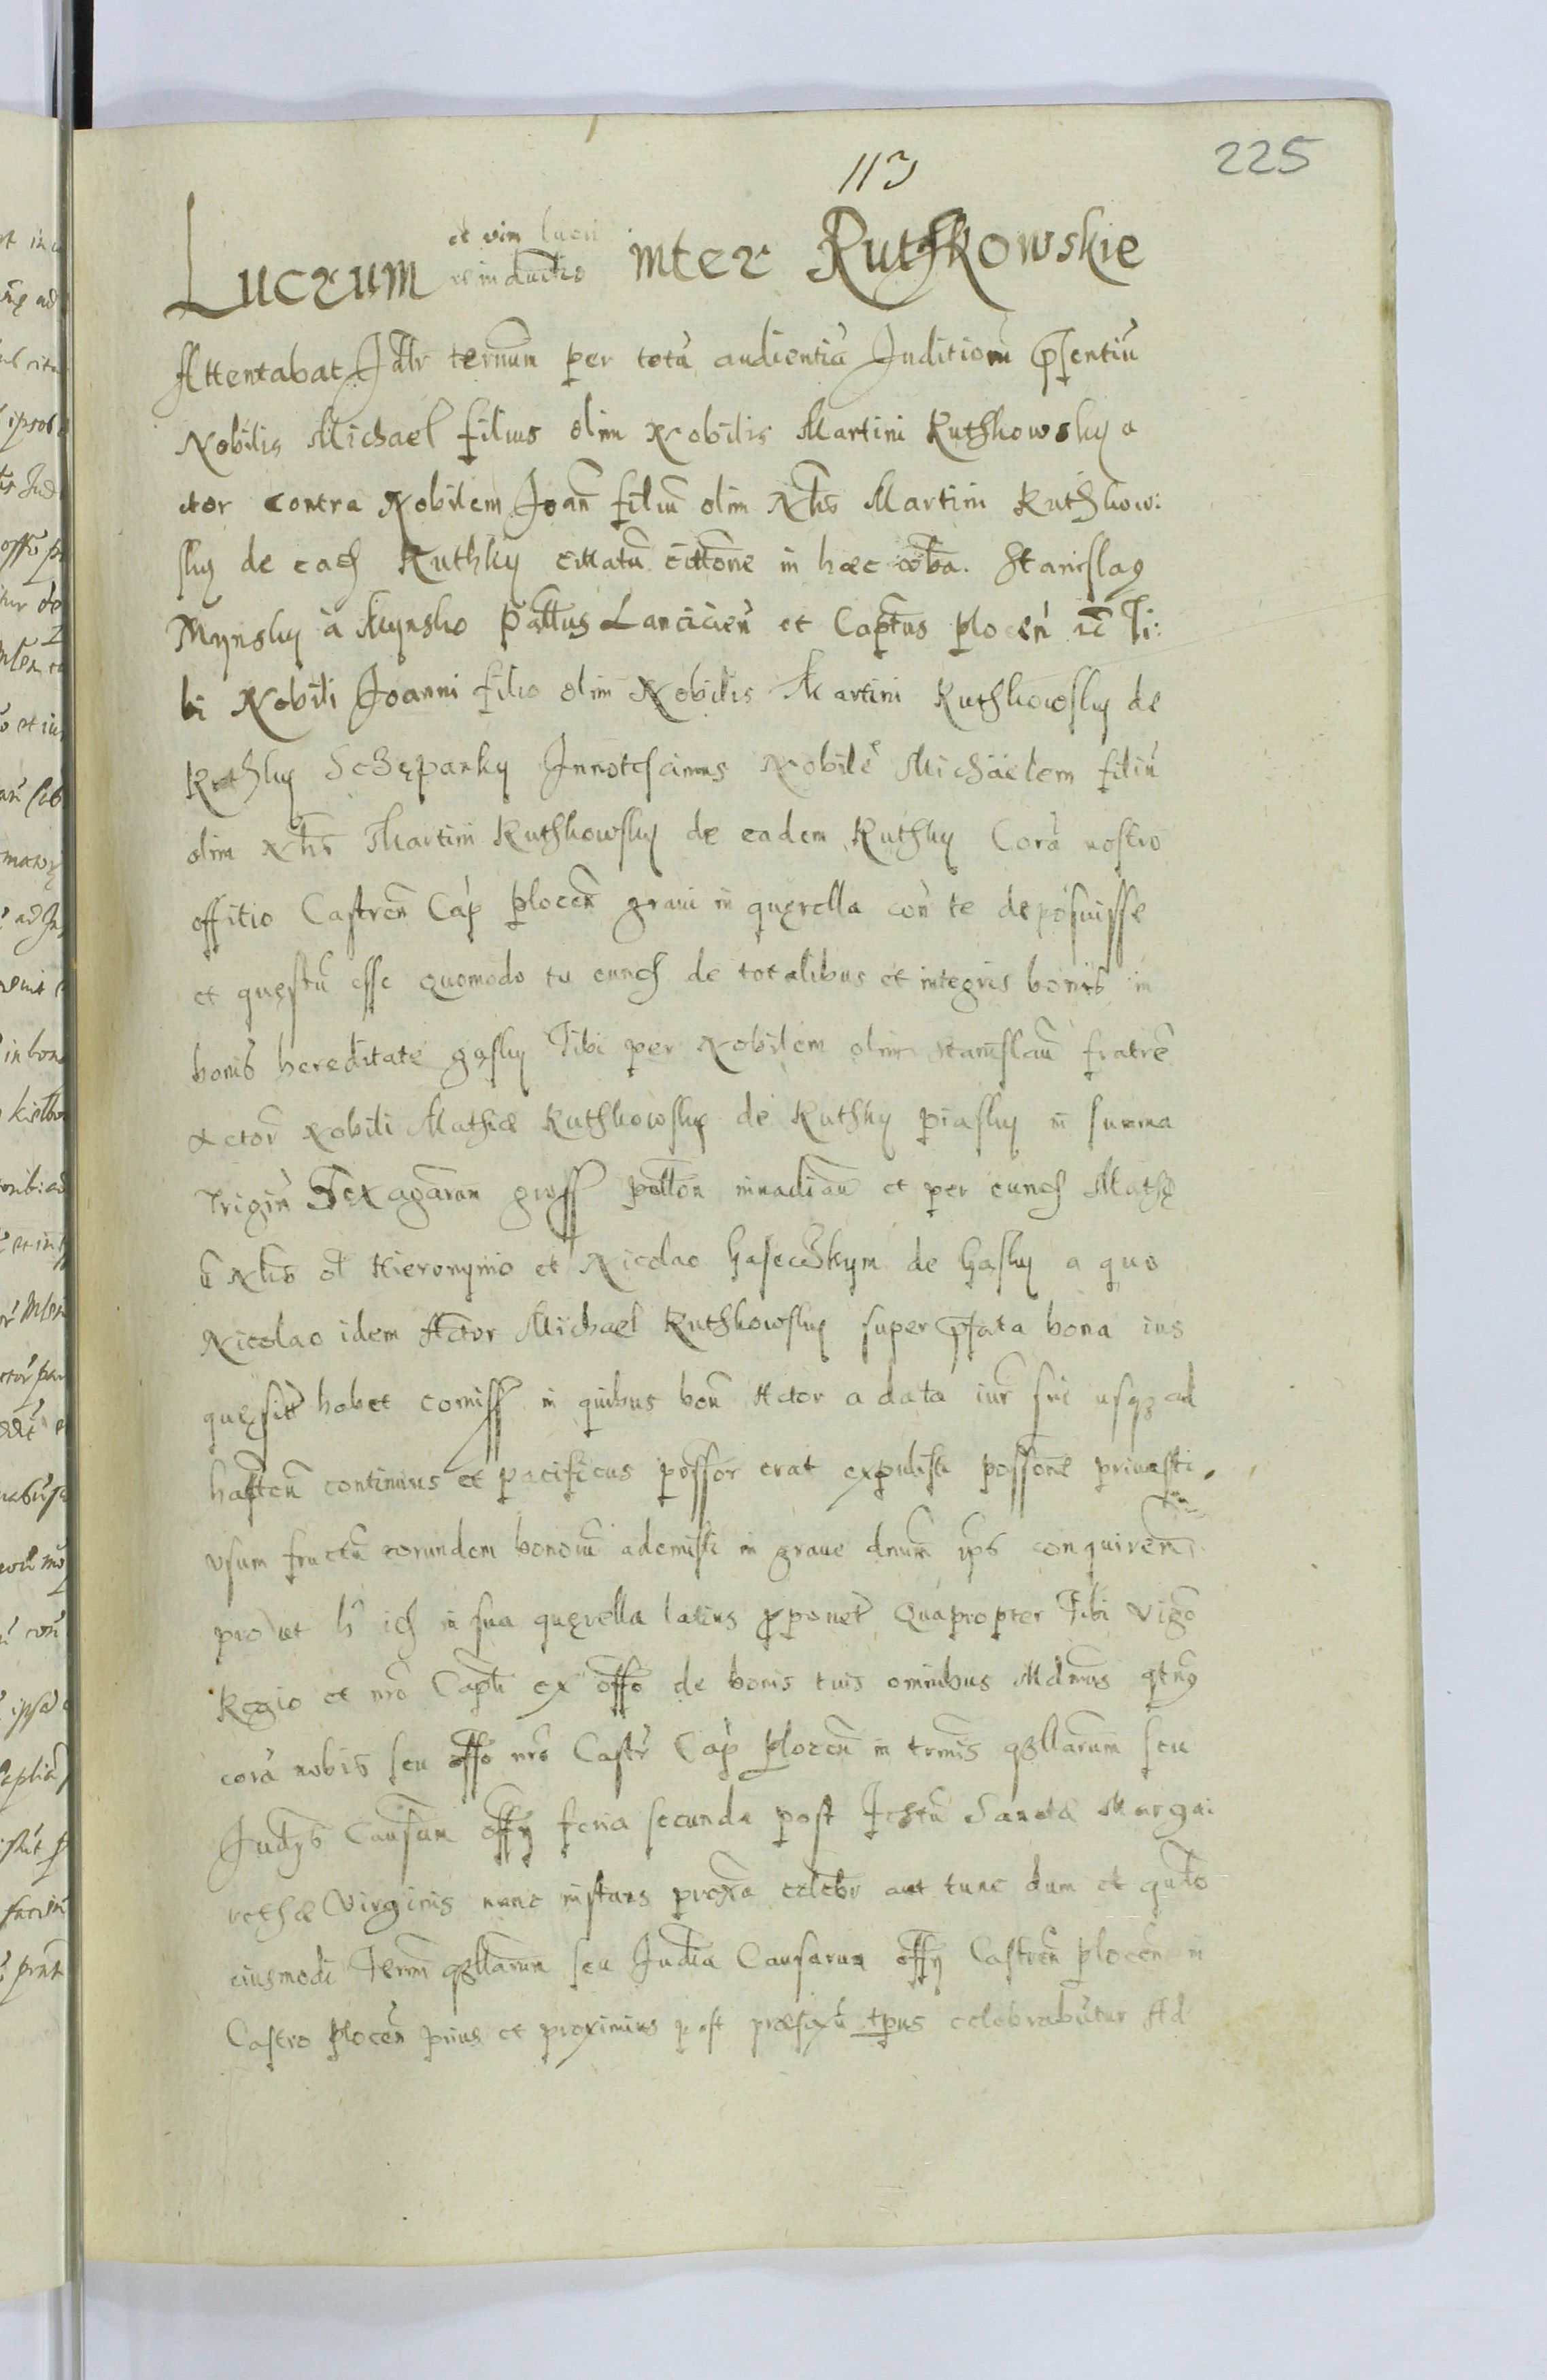 225
113
Lucrum et vim lucri reinductio inter Ruthkowskie
Attentabat Jdtr ternum per totũ audientiã Juditiorũ p̃sentiũ
Nobilis Michael filius olim Nobilis Martini Ruthkowsky a
ctor contra Nobilem Joan̄ filiũ olim Nb̃is Martini Ruthkow:
sky de eadẽ Ruthky cittatũ cittõne in hæc vb̃a. Stanislaus
Mynsky à Mynsko Pallt̃us Lanciciẽn et Capt̃us plocẽn etc̃ Ti:
bi Nobili Joanni filio olim Nobilis Martini Ruthkowsky de
Ruthky Schęparky Innotescimus Nobilẽ Michäelem filiũ
olim Nb̃is Martini Ruthkowsky de eadem Ruthky Corã nostro
offitio Castreñ Cap̃ plocẽn graui in querella con̄ te deposuisse
et quęstũ esse quomodo tu eundẽ de totalibus et integris bonis in
bonis hereditate gasky Tibi per Nobilem olim Stanislaũ fratrẽ
Actor̃ Nobili Mathiæ Ruthkowsky de Ruthky piasky in summa
Trigiñ Sexagẽnarum gross pollõn inuadiatũ et per eundẽ Mathę
ũ Nb̃is ol̃ Hieronymo et Nicolao Gaseczkym de Gasky a quo
Nicolao idem Actor Michael Ruthkowsky super p̃fata bona ius
quęsitũ habet comiss in quibus bon̄ Actor a data iur̃ sui usqz ad
hactẽn continuus et pacificus possor erat expulisti possõne priuasti,
vsum fructũ eorundem bonorũ ademisti in graue dnũm ip̃s conquirẽn̄
pro ut h̃ idẽ in sua querella latius p̃ponet̃ Quapropter Tibi Vigõ
Regio et nr̃o Captl̃i ex offõ de bonis tuis omnibus Mdmus qt̃nus
corã nobis seu offõ nr̃o Castr̃ Cap̃ plocẽn in tr̃mis qrllarum seu
Judys Causarum offy feria secunda post Festũ Sanctæ Marga:
rethæ Virginis nunc instans proxẽ celebr̃ aut tunc dum et qũdo
eiusmodi Term̃ qrllarum seu Judia Causarum offy Castreñ plocẽn in
Castro plocẽn prius et proximius post præfixũ tp̃us celebrabũtur Ad